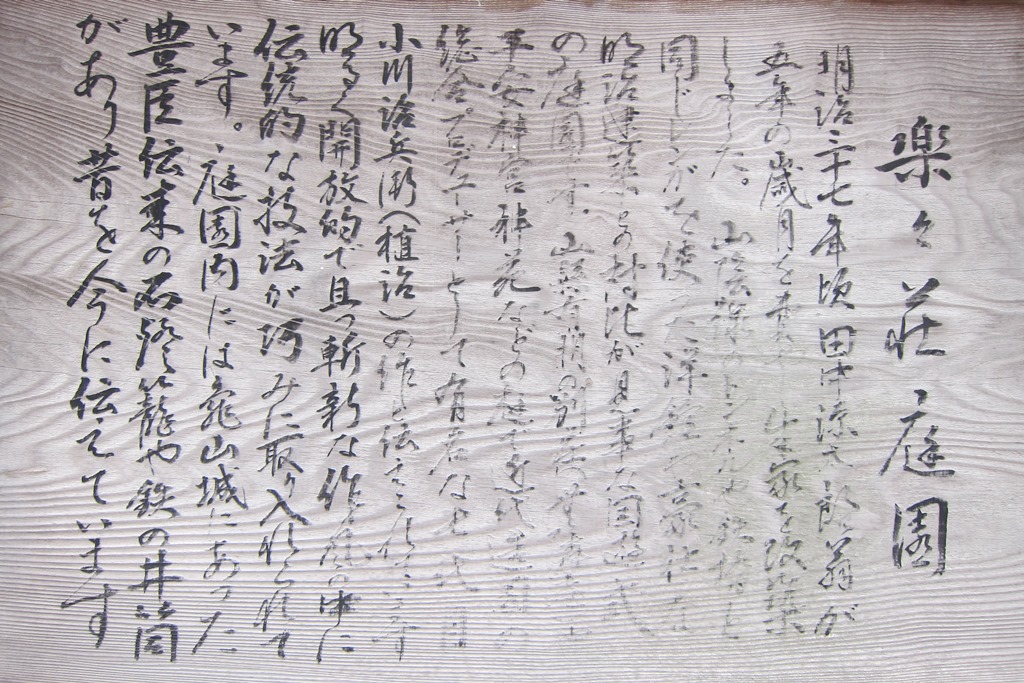 楽々荘庭園
明治三十七年頃田中源太郎翁が
五年の歳月を費 生家を改築
しました。山陰線のトンネルや鉄橋と
同じレンガを使 洋館 豪壮な
明治建築との対比が見事な回遊式
の庭園は、山縣有朋の別荘の
平安神宮神苑などの庭で近代造園の
総合プロデューサーとして有名な七代目
小川治兵衛(植治)の作と伝えられています
明るく開放的で且つ斬新な作庭の中に
伝統的な技法が巧みに取り入れられて
います。庭園内には亀山城にあった
豊臣伝来の石燈籠や鉄の井筒
があり昔を今に伝えています